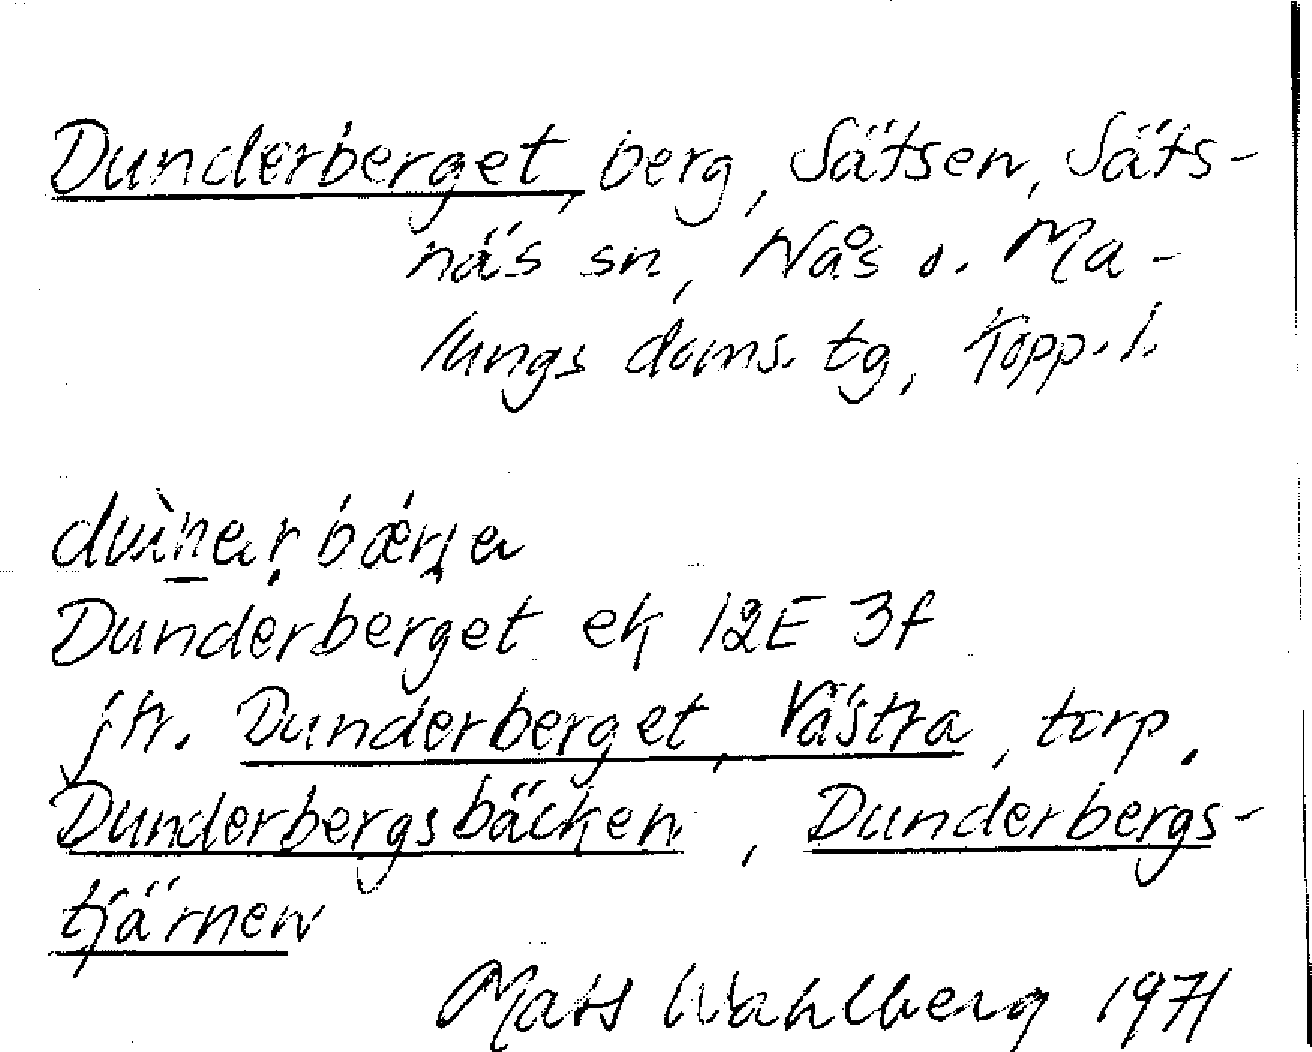 Dunderberget, berg, Sätsen, Säts-
näs sn, Nås o. Ma-
lungs doms. tg, Kopp. l.
Dunderberget ek 12E 3f
jfr. Dunderberget, Västra, torp.
Dunderbergsbäcken, Dunderbergs-
tjärnen
Mats Wahlberg 1971